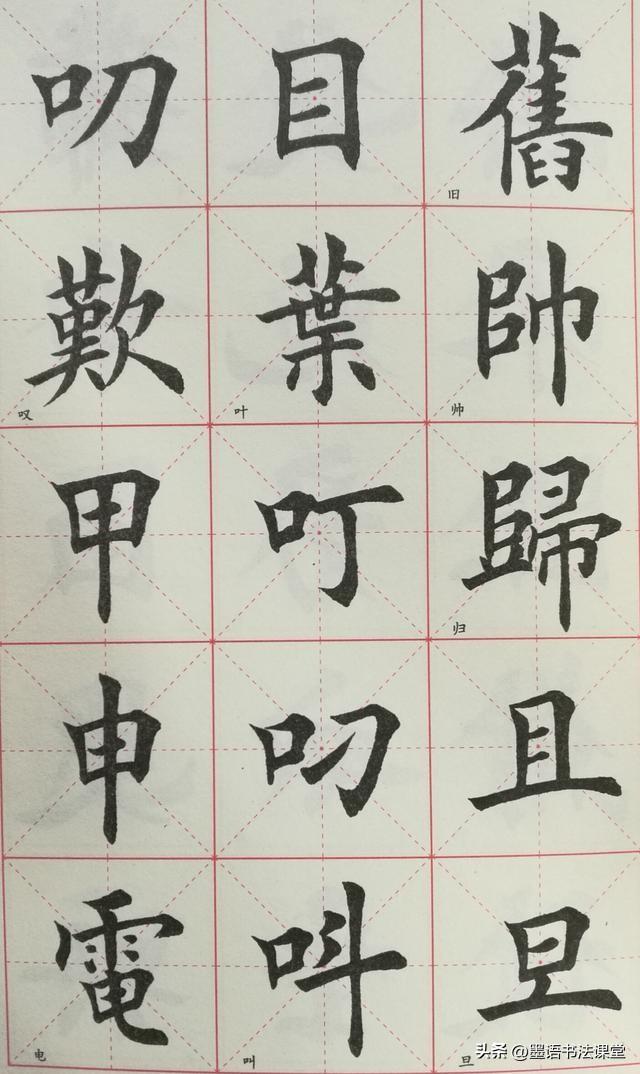 舊 旧
帥 帅
歸 归
且
旦 旦
目
葉 叶
叮
叼
呌 叫
叨
歎 叹
甲
申
電 电
头条 @墨语书法课堂